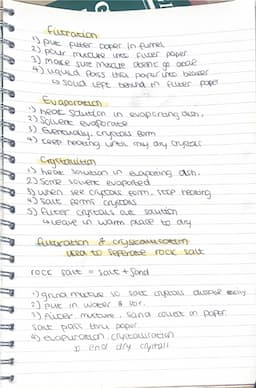 Filtration
1) put filter paper in funnel
2) pour mixture into filter paper
3) make sure mixture doesnt go above
4) liquid pass thru paper into beaker
↳ solid left behind in filter paper
Evaporation
1) heat solution in evaporating dish.
2) solvent evaporate
3) Eventually, crystals form
4) keep heating until only dry crystals
Crystallisation
1) heat solution in evaporating dish.
2) Some solvent evaporated
3) when see crystals form, stop heating
4) salt forms crystals
5) filter crystals out solution
↳ leave in warm place to dry
filtration & crystallisation
used to seperate rock salt
rock salt = salt + sand
1) grind mixture so salt crystals dissolve easily
2) put in water & stir.
3) filter mixture, sand collect on paper
salt pass thru paper.
4) evaporation, crystallisation
end dry crystals